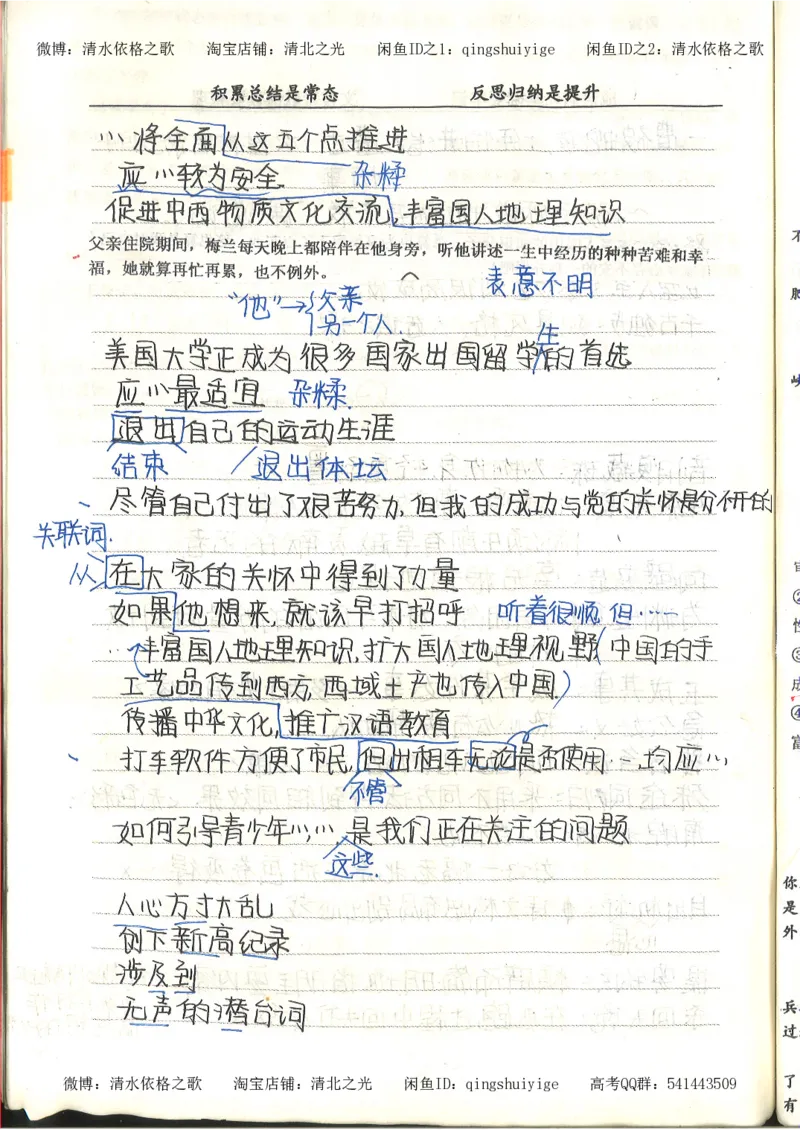 微博：清水依格之歌 淘宝店铺：清北之光 闲鱼ID之1：qingshuiyige 闲鱼ID之2：清水依格之歌
积累总结是常态 反思归纳是提升
将全面从这五个点推进
应 较为安全 杂糅
促进中西物质文化交流，丰富国人地理知识
父亲住院期间，梅兰每天晚上都陪伴在他身旁，听他讲述一生中经历的种种苦难和幸
福，她就算再忙再累，也不例外。
表意不明
“他”→{父亲
另一个人．
生
美国大学正成为很多国家出国留学的首选
应 最适宜 杂糅．
退出自己的运动生涯
结束 退出体坛
尽管自己付出了艰苦努力，但我的成功与党的关怀是分不开的
关联词．
从 在大家的关怀中得到了力量
如果他想来，就该早打招呼 听着很顺，但……
丰富国人地理知识，扩大国人地理视野（中国的手
工艺品传到西方，西域土产也传入中国）
传播中华文化，推广汉语教育
打车软件方便了市民，但出租车无论是否使用…均应
不管
如何引导青少年 是我们正在关注的问题
这些．
人心方寸大乱
创下新高纪录
涉及到
无声的潜台词
微博：清水依格之歌 淘宝店铺：清北之光 闲鱼ID：qingshuiyige 高考QQ群：541443509